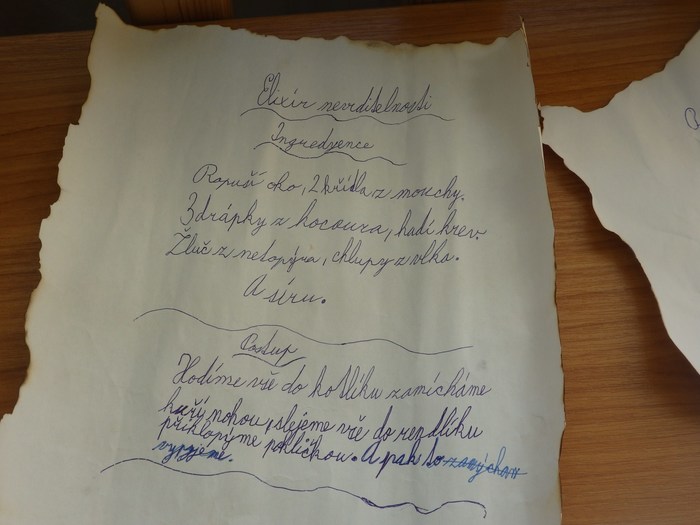 Elixír nevrditelnosti
Ingredyence
Ropuší oko, 2 křídla z mouchy.
3 drápky z kocoura, hadí krev.
Žluč z netopýra, chlupy z vlka.
A síru.
Postup
Hodíme vše do kotlíku zamícháme
kuří nohou, slejeme vše do rendlíku
příklopýme pokličkou. A pak to
vypijeme.